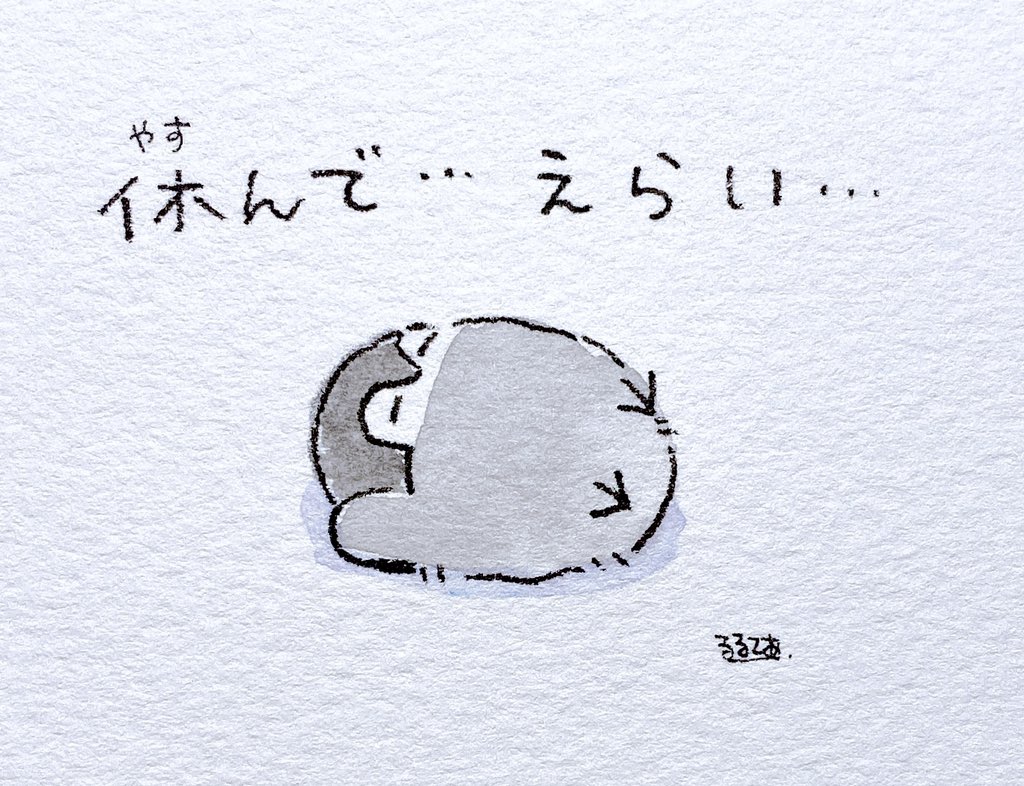 やす
休んで… えらい…
るるてあ.